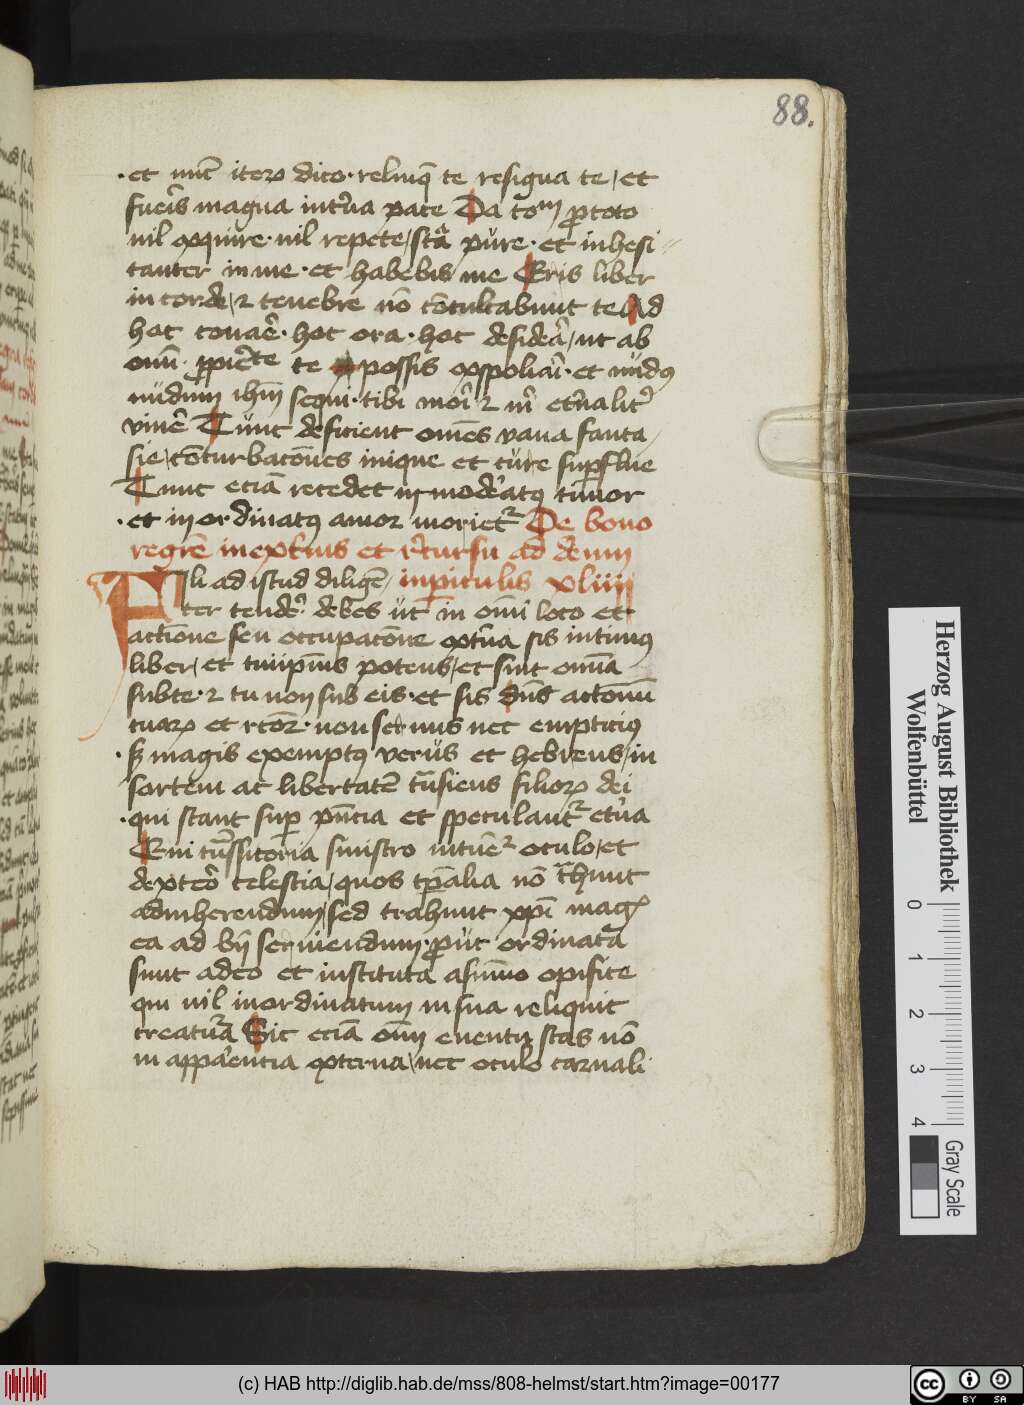 88.
et nūc iterꝝ dico · relinq̄ te resigna te / et
fueris magna interna pace Da totum pro toto
nil exquire · nil repete / sta pure · et inhesi-
tanter in me · et habebis me Eris liber
in corde / et tenebre nō cōculcabunt te Ad
hoc conare · hoc ora · hoc desidera / ut ab
omni proprietate te possis expoliari · et nudus
nudum ihm̄ sequi · tibi mori et mihi eternaliter
vivere Tunc deficient omnes vana fanta
sie / cōturbacōnes inique et cure superflue
Tunc eciā recedet in moderatus timor
· et in ordinatus amor morietur De bono
regimine in externis et recursu ad deum
Fili ad istud diligen- in periculis xliiii
ter tendere debes ut in omni loco et
actione seu occupacōne externa sis intimus
liber / et tuiipsius potens / et sint omnia
sub te · et tu non sub eis · et sis dn̄s actionum
tuarꝝ et rector · non servus nec empticius
· sed magis exemptus verus et hebreus / in
sortem ac libertatē transiens filiorꝝ dei
· qui stant super presencia et speculantur eterna
Qui transsitoria sinistro intuentur oculo / et
dextero celestia / quos temporalia nō trahunt
ad inherendum / sed trahunt ipsi magis
ea ad bene serviendum · prout ordinata
sunt a deo et instituta a summo opifice
qui nil inordinatum in sua reliquit
creatura Sic eciā omni eventu stas nō
in apparencia externa / nec oculo carnali
Herzog August Bibliothek
Wolfenbüttel
0 1 2 3 4
Gray Scale
(c) HAB http://diglib.hab.de/mss/808-helmst/start.htm?image=00177
cc BY SA